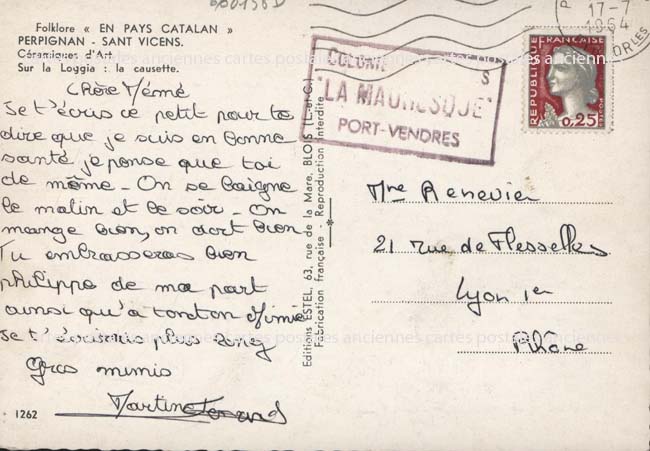 Folklore « EN PAYS CATALAN »
PERPIGNAN - SANT VICENS.
Céramiques d'Art
Sur la Loggia : la causette.
Mémé
Je t'écris ce petit pour te
dire que je suis en bonne
santé je pense que toi
de même - On se baigne
le matin et le soir - On
mange bien, on dort bien
Tu embrasseras bien
Philippe de ma part
ainsi qu'a tonton Mimi
Je t'écrirais plus long
Gros mimis
Martine
1262
Editions ESTEL, 63, rue de la Mare, BLOIS (L.-et-C.)
Fabrication française - Reproduction interdite
COLONIE S
"LA MAURESQUE"
PORT-VENDRES
17-7
1964
REPUBLIQUE FRANCAISE
0,25
Mme Renevier
21 rue de Flesselles
Lyon 1er
Rhône
postales anciennes cartes postales anciennes cartes postales anciennes